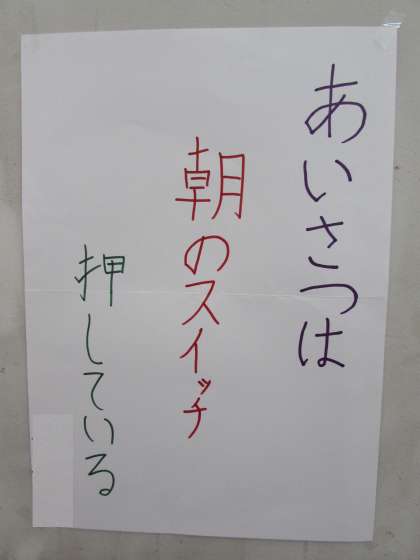 あいさつは
朝のスイッチ
押している